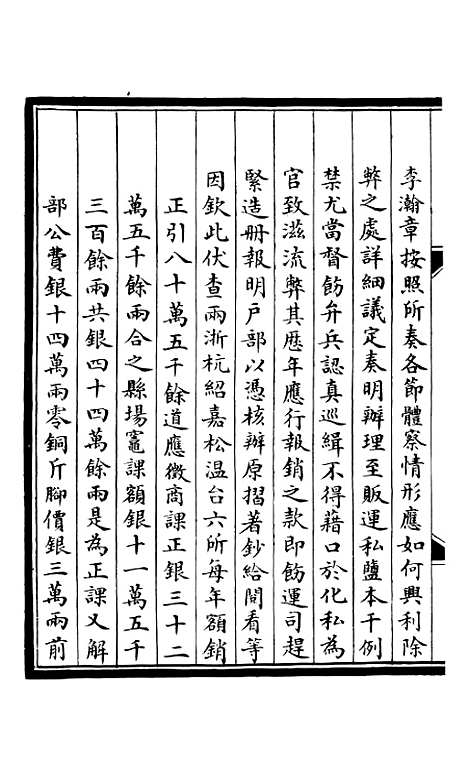 李瀚章按照所奏各節體察情形應如何興利除
弊之處詳細議定奏明辦理至販運私鹽本干例
禁尤當督飭弁兵認真巡緝不得藉口於化私為
官致滋流弊其歷年應行報銷之款即飭運司趕
緊造册報明戶部以憑核辦原摺著鈔給閱看等
因欽此伏查兩浙杭紹嘉松温台六所每年額銷
正引八十萬五千餘道應徵商課正銀三十二
萬五千餘兩合之縣場竈課額銀十一萬五千
三百餘兩共銀四十四萬餘兩是為正課又解
部公費銀十四萬兩零銅斤腳價銀三萬兩前